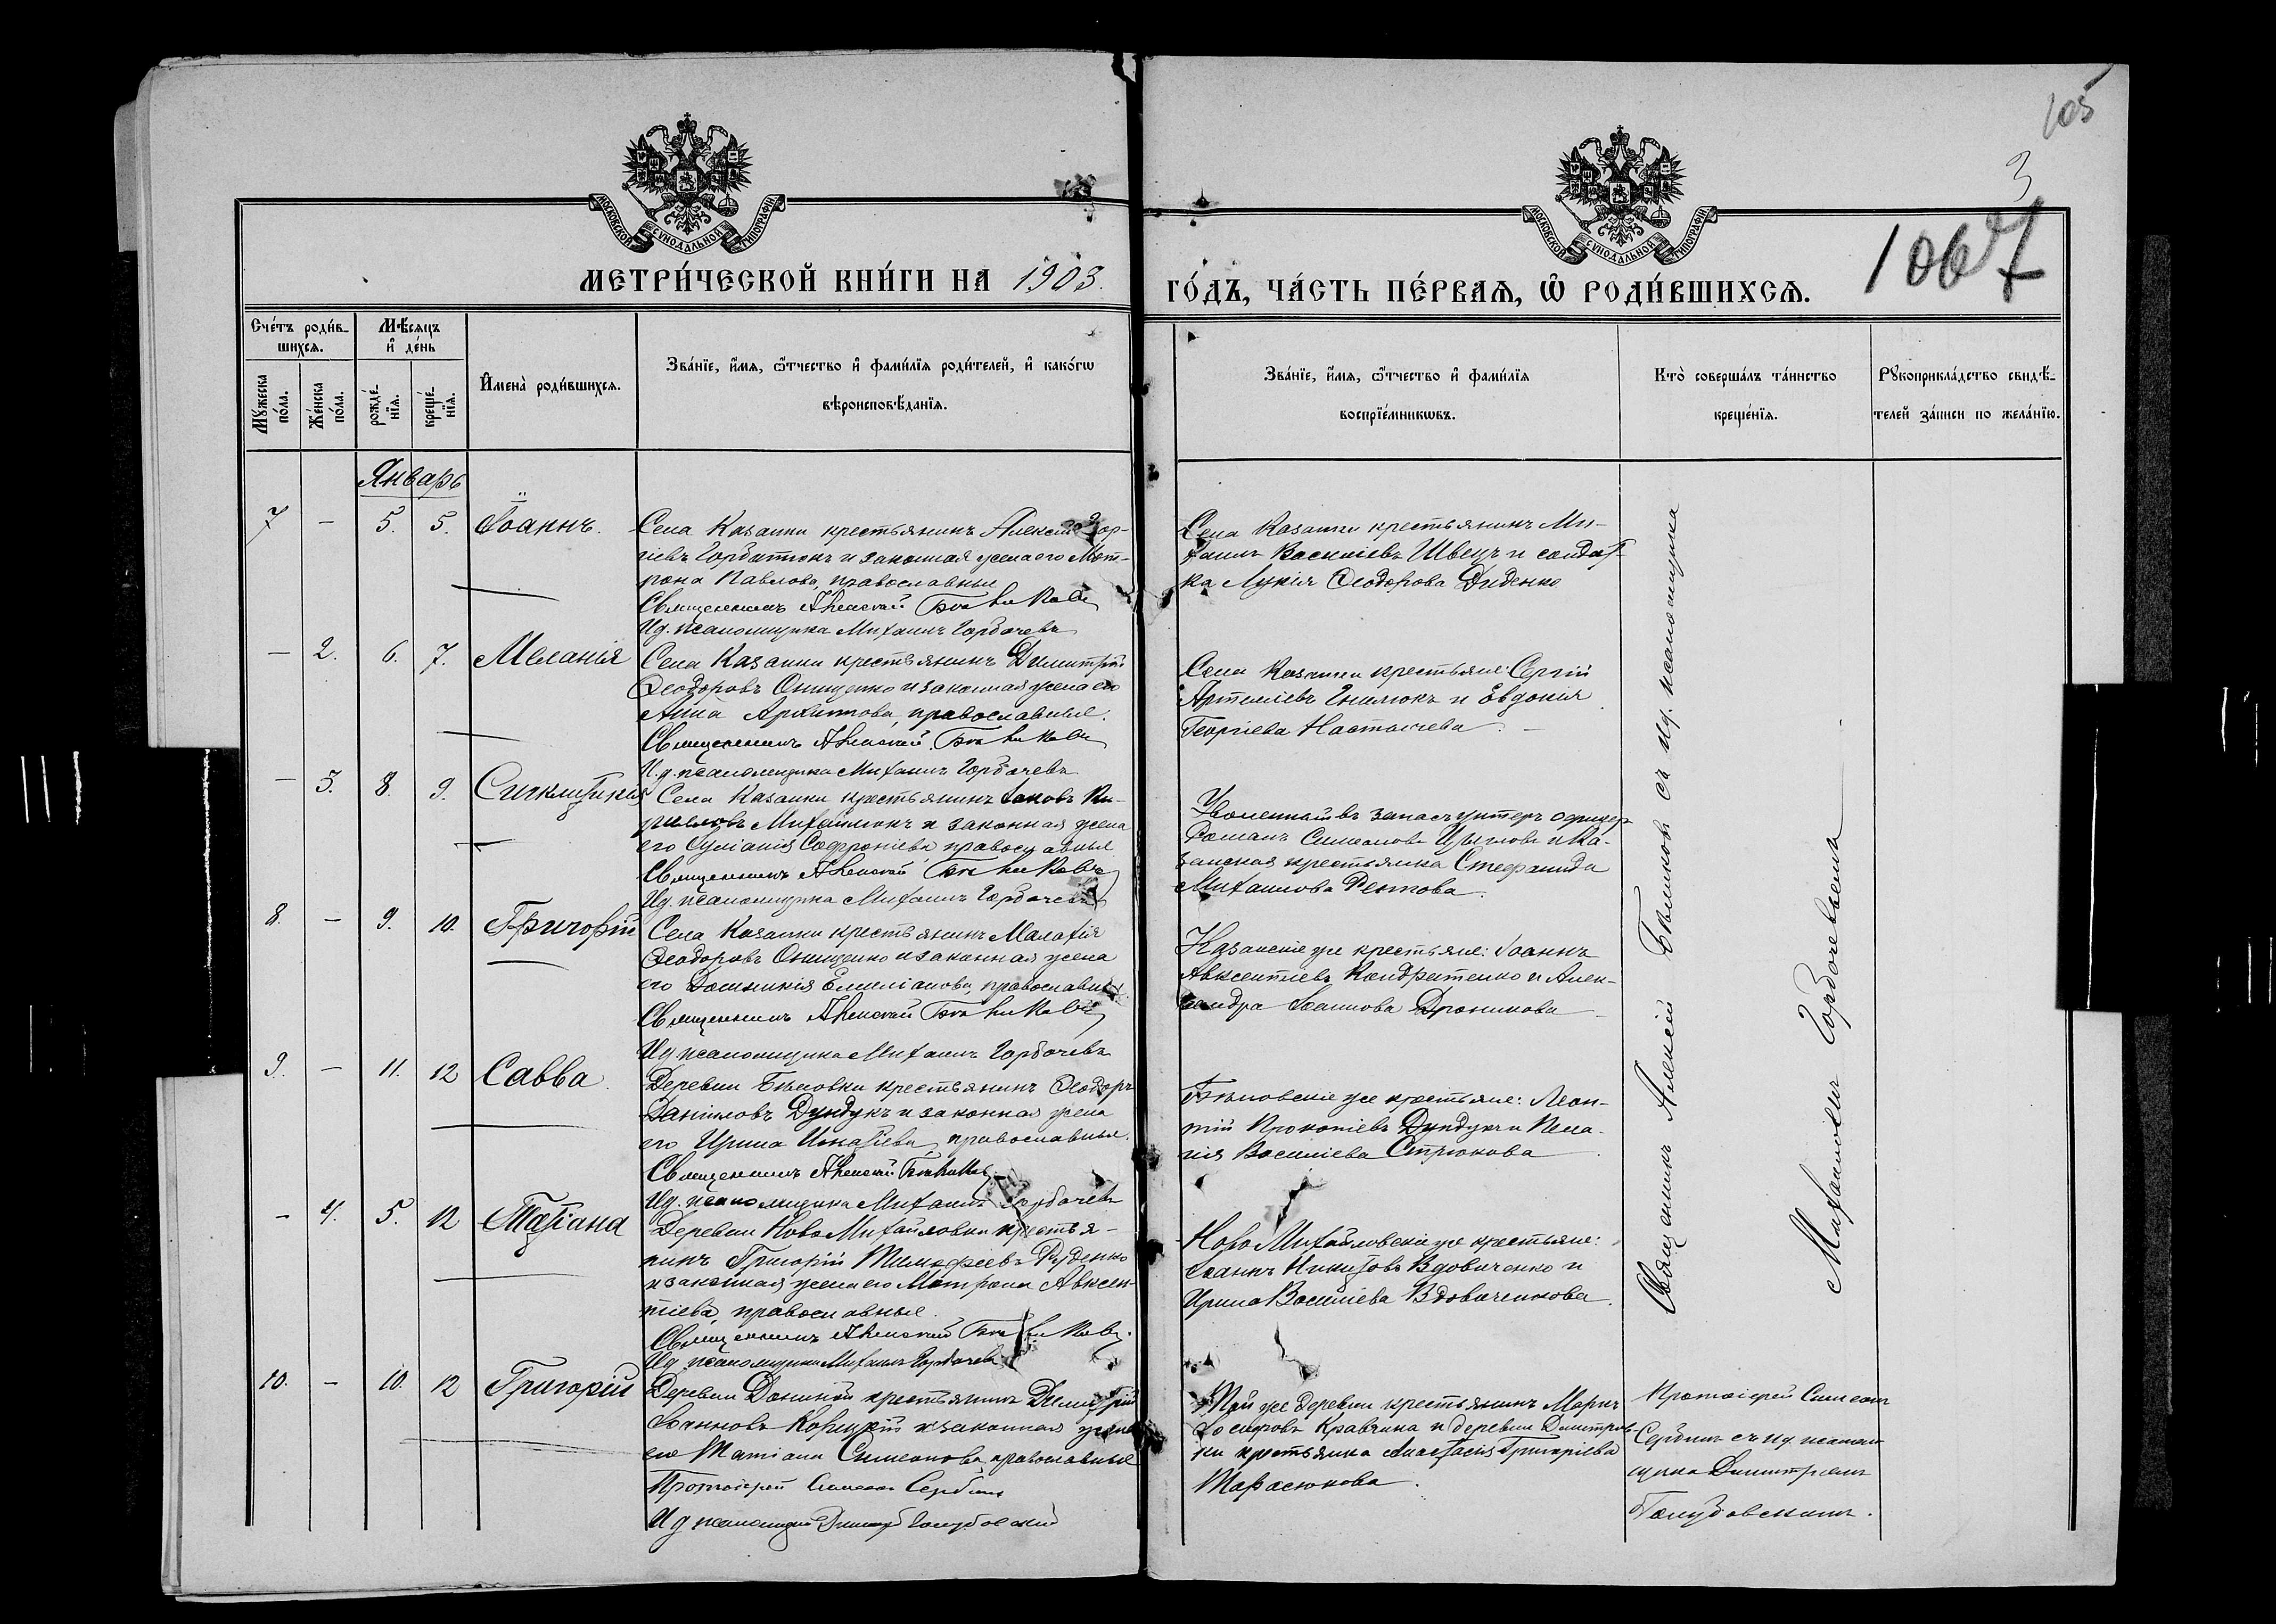 105
3
1067
МОСКОВСКОЙ СУНОДАЛЬНОЙ ТИПОГРАФІИ
МОСКОВСКОЙ СУНОДАЛЬНОЙ ТИПОГРАФІИ
МЕТРИ́ЧЕСКОЙ КНИ́ГИ НА 1903.
ГО́ДЪ, ЧА́СТЬ ПЕ́РВАѦ, Ѡ҆ РОДИ́ВШИХСѦ.
Сче́тъ роди́в-
шихсѧ.
Мꙋ́жеска по́ла.
Же́нска по́ла.
Мѣ́сѧцъ
и҆ де́нь
рожде́-
нїѧ.
креще́-
нїѧ.
И҆мена̀ роди́вшихсѧ.
Зва́нїе, и҆́мѧ, ѻ҆́тчество и҆ фами́лїѧ роди́телей, и҆ како́гѡ
вѣроисповѣ́данїѧ.
Зва́нїе, и҆́мѧ, ѻ҆́тчество и҆ фами́лїѧ
воспрїе́мникѡвъ.
Кто̀ соверша́лъ та́инство
креще́нїѧ.
Рꙋкоприкла́дство свидѣ́-
телей за́писи по жела́нїю.
Январь
7 - 5. 5. Іоаннъ.
Села Казанки крестьянинъ Алексій Геор-
гіевъ Горбатюкъ и законная жена его Мат-
рона Павлова, православные
Священникъ Алексій Бѣликовъ
Ид. псаломщика Михаилъ Горбачевъ
Села Казанки крестьянинъ Ми-
хаилъ Василіевъ Швецъ и солдат-
ка Лукія Ѳеодорова Диденко
- 2. 6. 7. Меланія
Села Казанки крестьянинъ Димитрій
Ѳеодоровъ Онищенко и законная жена его
Анна Архипова, православные.
Священникъ Алексій Бѣликовъ
И.д. псаломщика Михаилъ Горбачевъ
Села Казанки крестьяне: Сергій
Артеміевъ Гнилюкъ и Евдокія
Георгіева
- 3. 8. 9. Синклитикія
Села Казанки крестьянинъ Іаковъ Ки-
рилловъ Михайлюкъ и законная жена
его Іуліанія Софроніева православные
Священникъ Алексій Бѣликовъ
Ид. псаломщика Михаилъ Горбачевъ
Уволенный въ запасъ унтеръ офицеръ
Романъ Симеоновъ и Ка-
занская крестьянка Стефанида
Михаилова
8. - 9. 10. Григорій
Села Казанки крестьянинъ Малахія
Ѳеодоровъ Онищенко и законная жена
его Домникія Емиліанова, православные
Священникъ Алексій Бѣликовъ
Ид псаломщика Михаилъ Горбачевъ
Казанскіе же крестьяне: Іоаннъ
Авксентіевъ Кондратенко и Алек-
сандра Іоаннова Дроникова
9. - 11. 12 Савва.
Деревни Бѣловки крестьянинъ Ѳеодоръ
Даніиловъ Дундукъ и законная жена
его Ирина Игнатіева, православные.
Священникъ Алексій Бѣликовъ
Ид. псаломщика Михаилъ Горбачевъ
Бѣловскіе же крестьяне: Леон-
тій Прокопіевъ Дундукъ и Пела-
гія Василіева Стрюкова
- 4. 5. 12 Татіана
Деревни Ново Михайловки крестья-
нинъ Григорій Тимофеевъ Руденко
и законная жена его Матрона Авксен-
тіева, православные.
Священникъ Алексій Бѣликовъ.
Ид псаломщика Михаилъ Горбачевъ
Ново Михайловскіе же крестьяне:
Іоаннъ Никитовъ Вдовиченко и
Ирина Василіева Вдовиченкова.
10. - 10. 12 Григорій
Деревни крестьянинъ Димитрій
Іоанновъ и законная жена
его Татіана Симеонова, православные
Протоіерей Симеонъ Сербинъ
И д псаломщика Димитр Голубовскій
Той же деревни крестьянинъ Маркъ
Іосифовъ Кравчина и деревни Димитров-
ки крестьянка Анастасія Григоріева
Тарасюкова.
Священникъ Алексій Бѣликовъ съ ид. псаломщика
Михаиломъ Горбачевымъ
Протоіерей Симеонъ
Сербинъ съ ид. псалом-
щика Димитріемъ
Голубовскимъ.